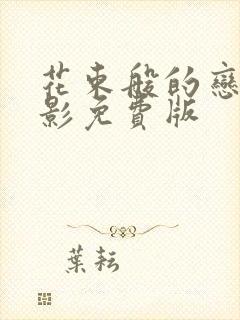 花束般的戀
影免費版
葉耘